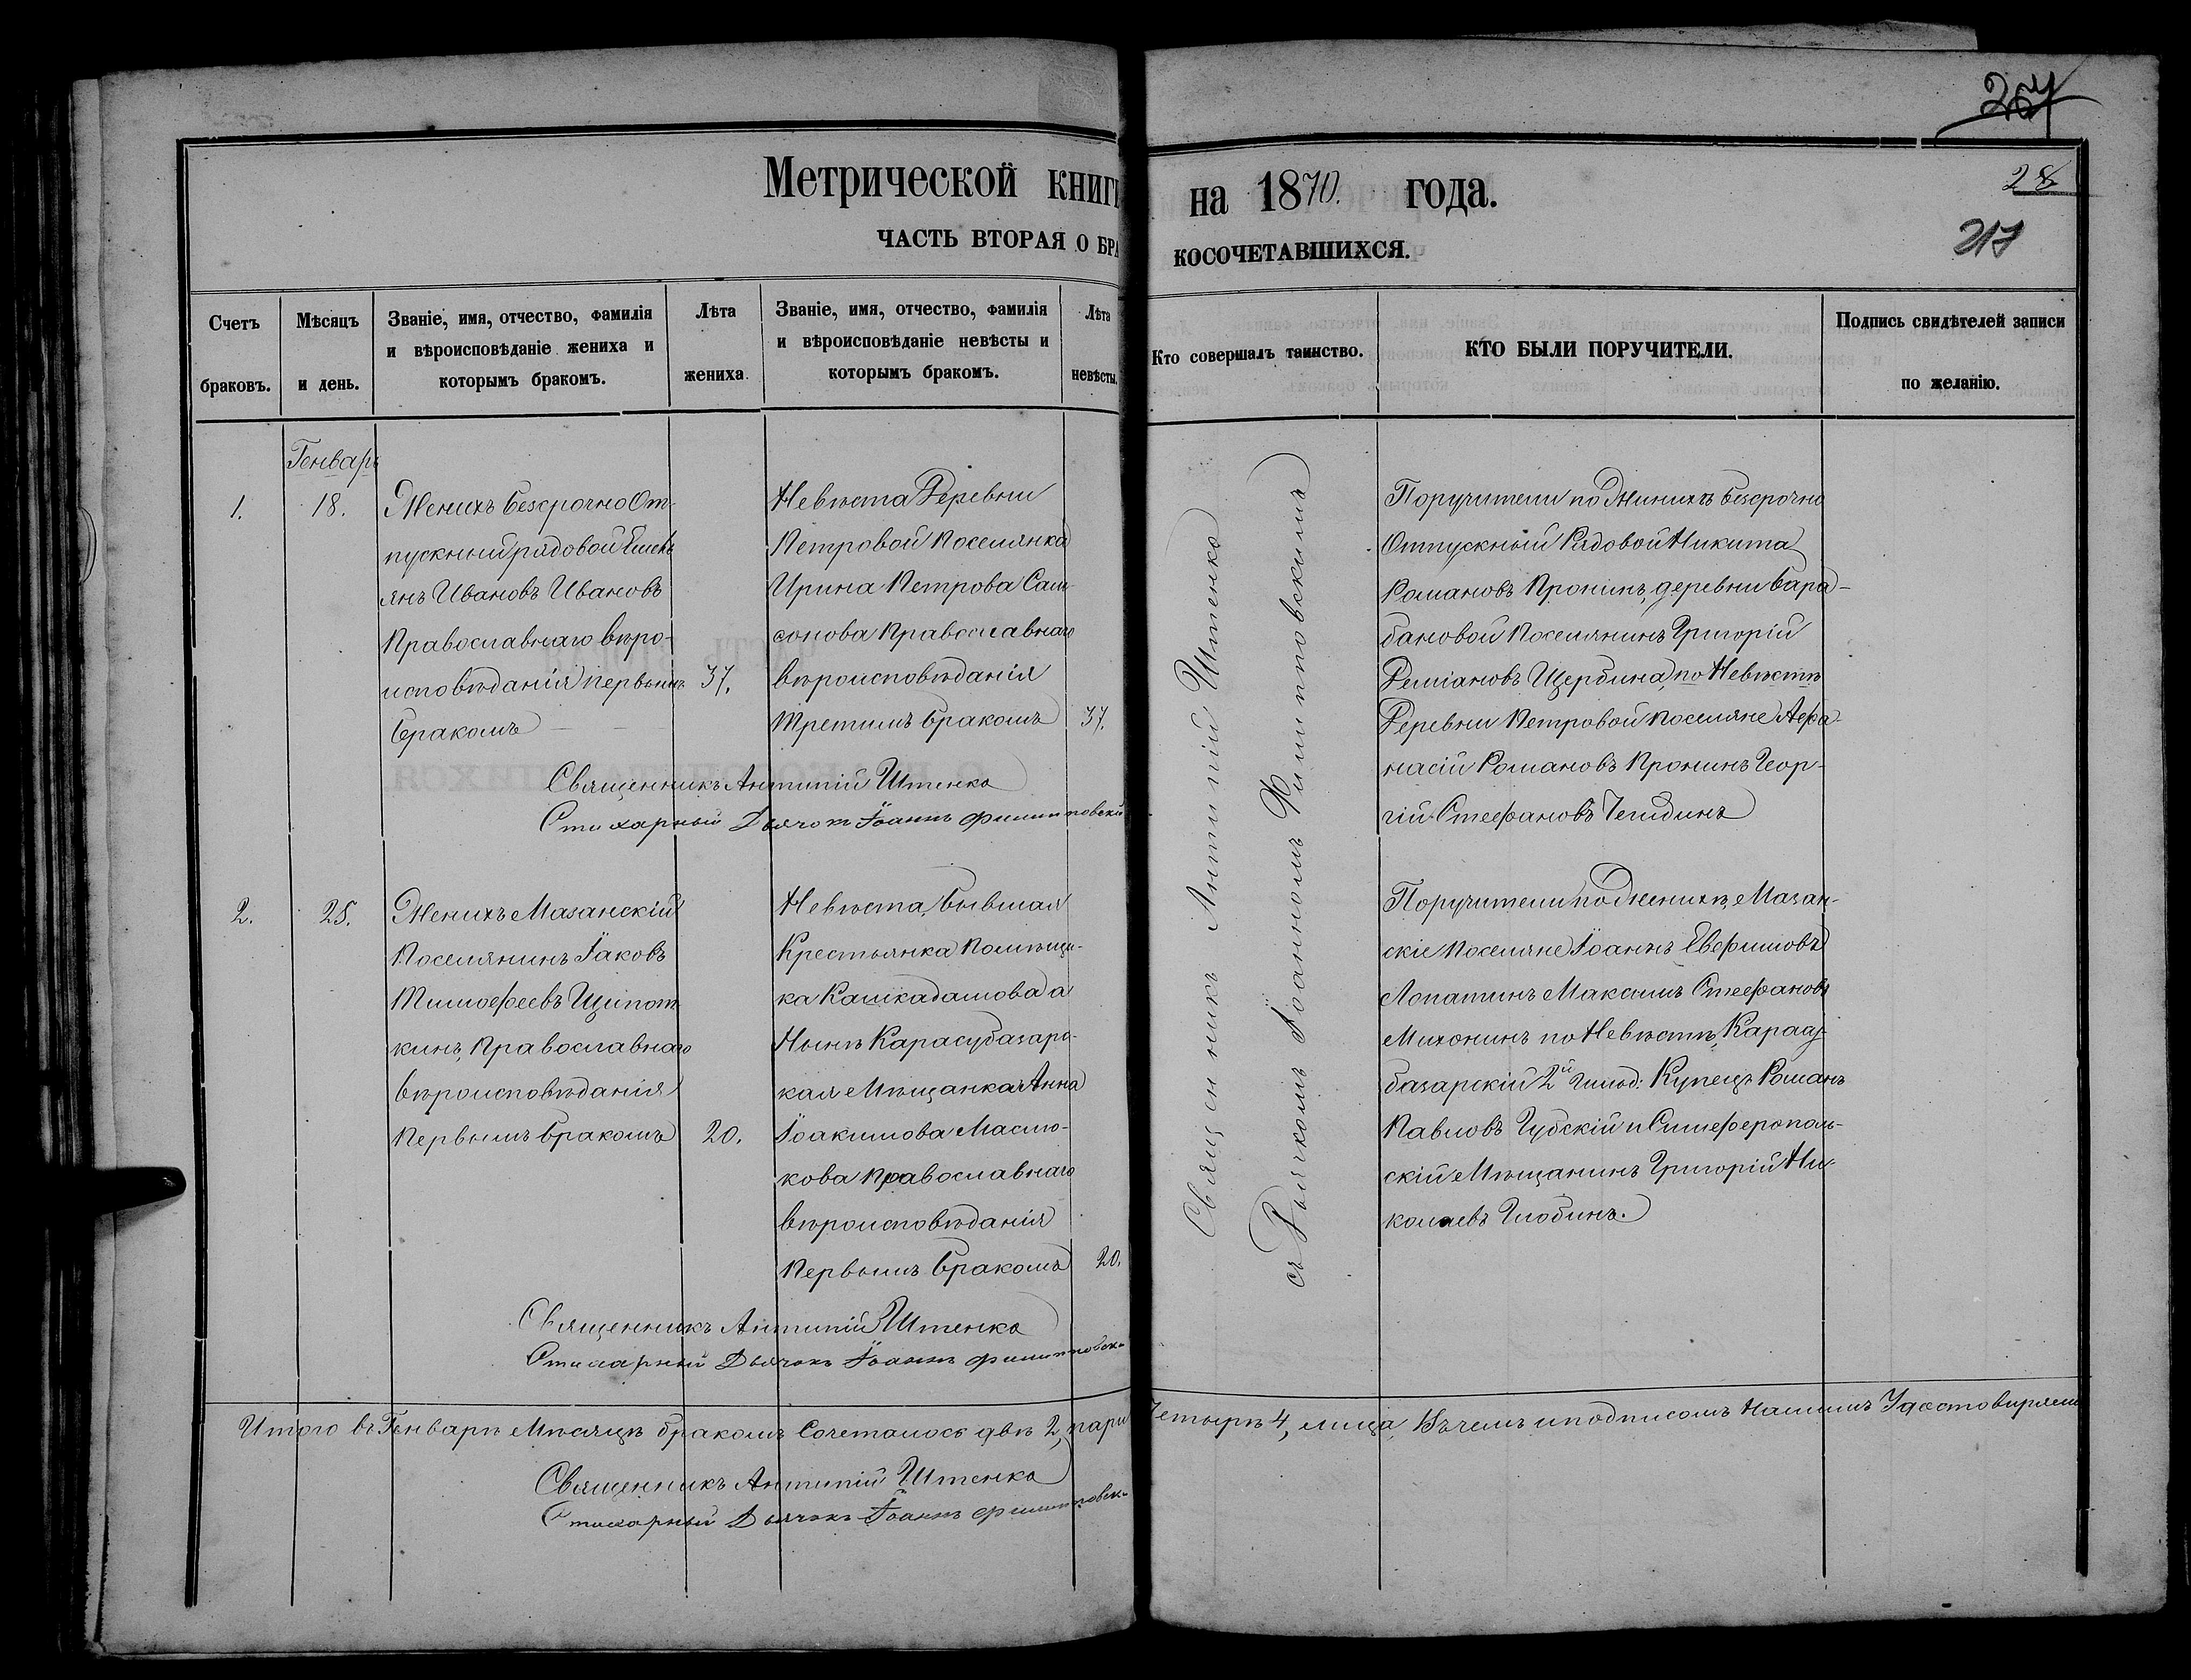 Метрической книги на 1870. года.
ЧАСТЬ ВТОРАЯ О БРАКОСОЧЕТАВШИХСЯ.
28
217
Счетъ браковъ.
Мѣсяцъ и день.
Званіе, имя, отчество, фамилія
и вѣроисповѣданіе жениха и
которымъ бракомъ.
Лѣта
жениха
Званіе, имя, отчество, фамилія
и вѣроисповѣданіе невѣсты и
которымъ бракомъ.
Лѣта
невѣсты.
Кто совершалъ таинство.
КТО БЫЛИ ПОРУЧИТЕЛИ.
Подпись свидѣтелей записи
по желанію.
Генварь
1.
18.
Женихъ безсрочно От-
пускный рядовой Емель
янъ Ивановъ Ивановъ
Православнаго вѣро-
исповѣданія первымъ
бракомъ
37.
Невѣста Деревни
Петровой Поселянка
Ирина Петрова Сам-
сонова Православнаго
вѣроисповѣданія
Третимъ бракомъ
37.
Священникъ Антипій Штенко
Стихарный Дьячокъ Іоаннъ Филипповскій
Священникъ Антипій Штенко
съ Дьячкомъ Іоанномъ Филипповскимъ
Поручители по Жинихѣ безсрочно
Отпускный Рядовой Никита
Романовъ Пронинъ, деревни Бара-
бановой Поселянинъ Григорій
Деміановъ Щербина, по Невѣстѣ
Деревни Петровой поселяне Афа-
насій Романовъ Пронинъ Геор-
гій Стефановъ
2.
25.
Женихъ Мазанскій
Поселянинъ Іаковъ
Тимофеевъ Щипот
кинъ, Православнаго
вѣроисповѣданія
Первымъ бракомъ
20.
Невѣста, бывшая
Крестьянка Помѣщи-
ка Кашкадамова а
Нынѣ Карасубазарс-
кая Мѣщанкая Анна
Іоакимова Маслю-
кова Православнаго
вѣроисповѣданія
Первымъ бракомъ
20.
Священникъ Антипій Штенко
Стихарный Дьячокъ Іоаннъ Филипповскі
Поручители по Женихѣ, Мазан-
скіе Поселяне Іоаннъ Евфимовъ
Лопатинъ Максимъ Стефановъ
Михонинъ по Невѣстѣ,
базарскій 2й Гильд: Купецъ Романъ
Павловъ Губскій и Симферополь-
скій Мѣщанинъ Григорій Ни-
колаевъ Глобинъ.
Итого въ Генварѣ Мѣсяцѣ бракомъ Сочеталось двѣ 2, пари Четырѣ 4, лица, Въ чемъ и подписомъ Нашимъ Удостовиряем
Священникъ Антипій Штенко
Стихарный Дьячокъ Іоаннъ Филипповскі